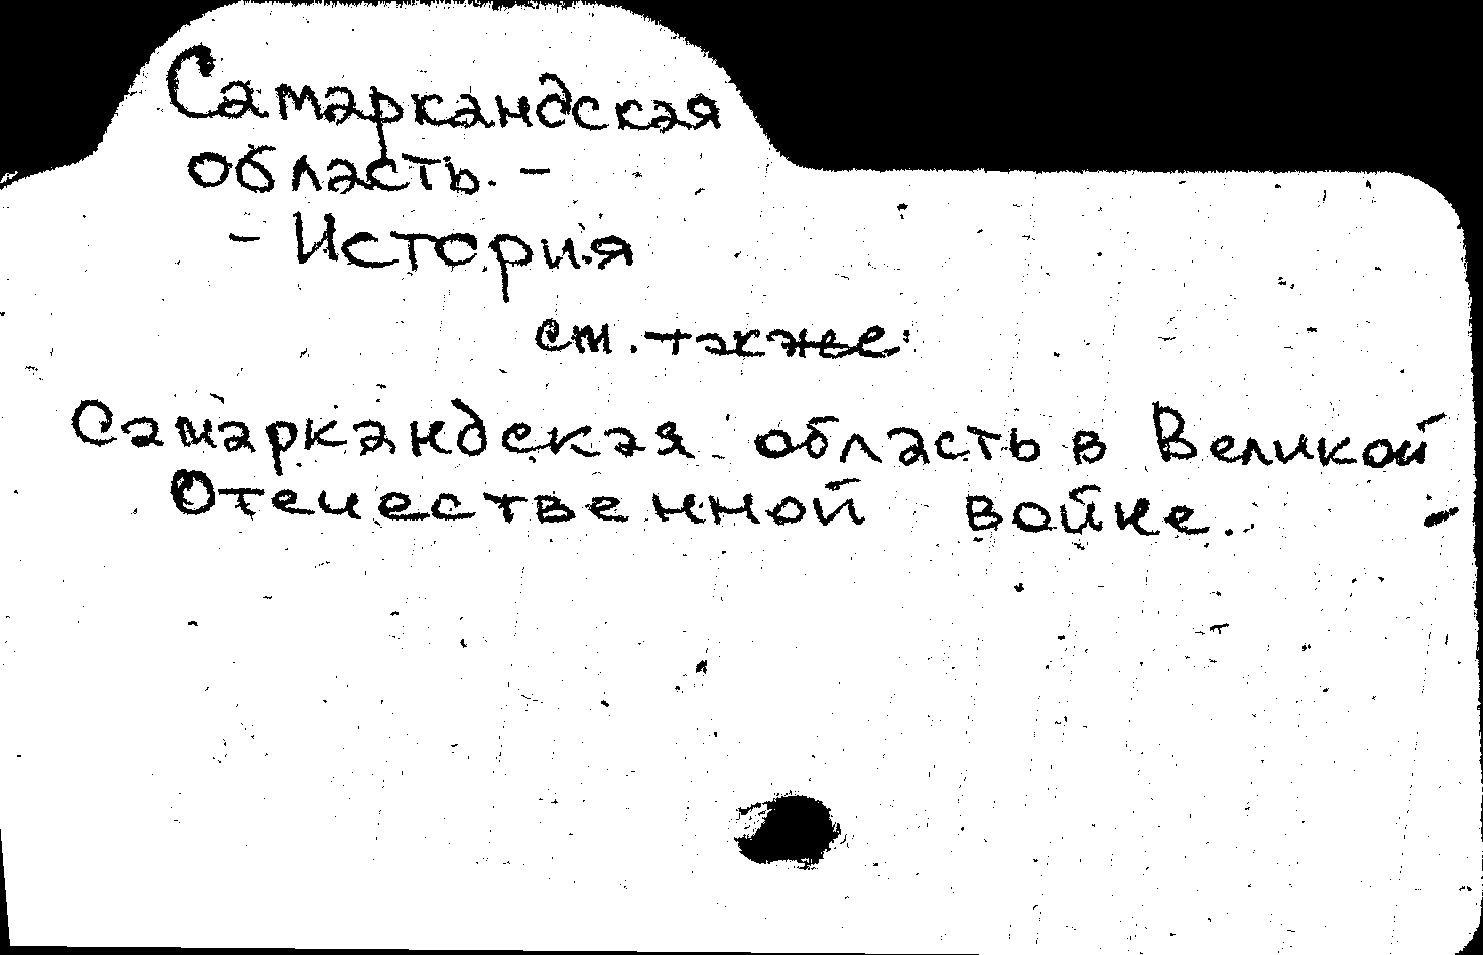 Самаркандская
область. -
- История
см. также
Самаркандская область в Великой
Отечественной войне.